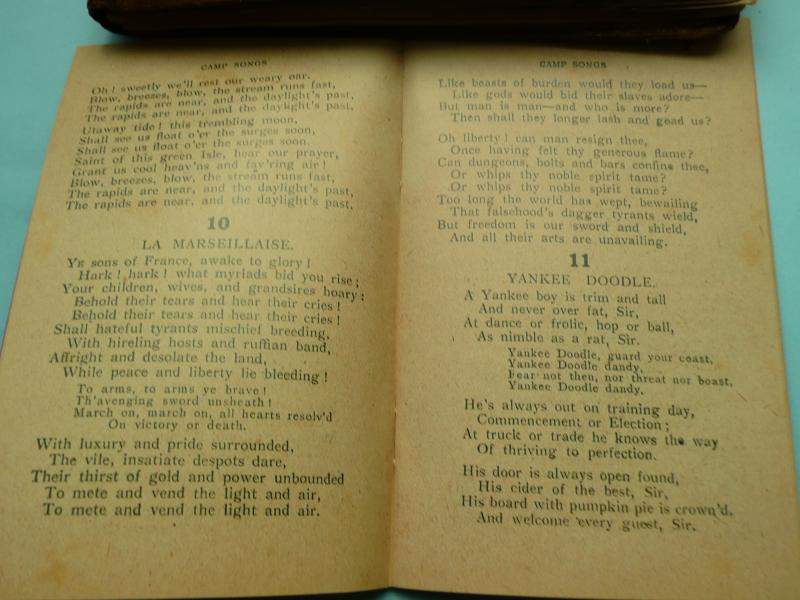 CAMP SONGS
Oh! sweetly we'll rest our weary oar.
Blow, breezes, blow, the stream runs fast,
The rapids are near, and the daylight's past,
The rapids are near, and the daylight's past,
Utaway tide! this trembling moon,
Shall see us float o'er the surges soon,
Shall see us float o'er the surges soon.
Saint of this green Isle, hear our prayer,
Grant us cool heav'ns and fav'ring air!
Blow, breezes, blow, the stream runs fast,
The rapids are near, and the daylight's past,
The rapids are near, and the daylight's past.
10
LA MARSEILLAISE.
Ye sons of France, awake to glory!
Hark! hark! what myriads bid you rise;
Your children, wives, and grandsires hoary;
Behold their tears and hear their cries!
Behold their tears and hear their cries!
Shall hateful tyrants mischief breeding,
With hireling hosts and ruffian band,
Affright and desolate the land,
While peace and liberty lie bleeding!
To arms, to arms ye brave!
Th'avenging sword unsheath!
March on, march on, all hearts resolv'd
On victory or death.
With luxury and pride surrounded,
The vile, insatiate despots dare,
Their thirst of gold and power unbounded
To mete and vend the light and air,
To mete and vend the light and air.
CAMP SONGS
Like beasts of burden would they load us—
Like gods would bid their slaves adore—
But man is man—and who is more?
Then shall they longer lash and goad us?
Oh liberty! can man resign thee,
Once having felt thy generous flame?
Can dungeons, bolts and bars confine thee,
Or whips thy noble spirit tame?
Or whips thy noble spirit tame?
Too long the world has wept, bewailing
That falsehood's dagger tyrants wield,
But freedom is our sword and shield,
And all their arts are unavailing.
11
YANKEE DOODLE.
A Yankee boy is trim and tall
And never over fat, Sir,
At dance or frolic, hop or ball,
As nimble as a rat, Sir.
Yankee Doodle, guard your coast,
Yankee Doodle dandy,
Fear not then, nor threat nor boast,
Yankee Doodle dandy.
He's always out on training day,
Commencement or Election;
At truck or trade he knows the way
Of thriving to perfection.
His door is always open found,
His cider of the best, Sir,
His board with pumpkin pie is crown'd,
And welcome every guest, Sir.